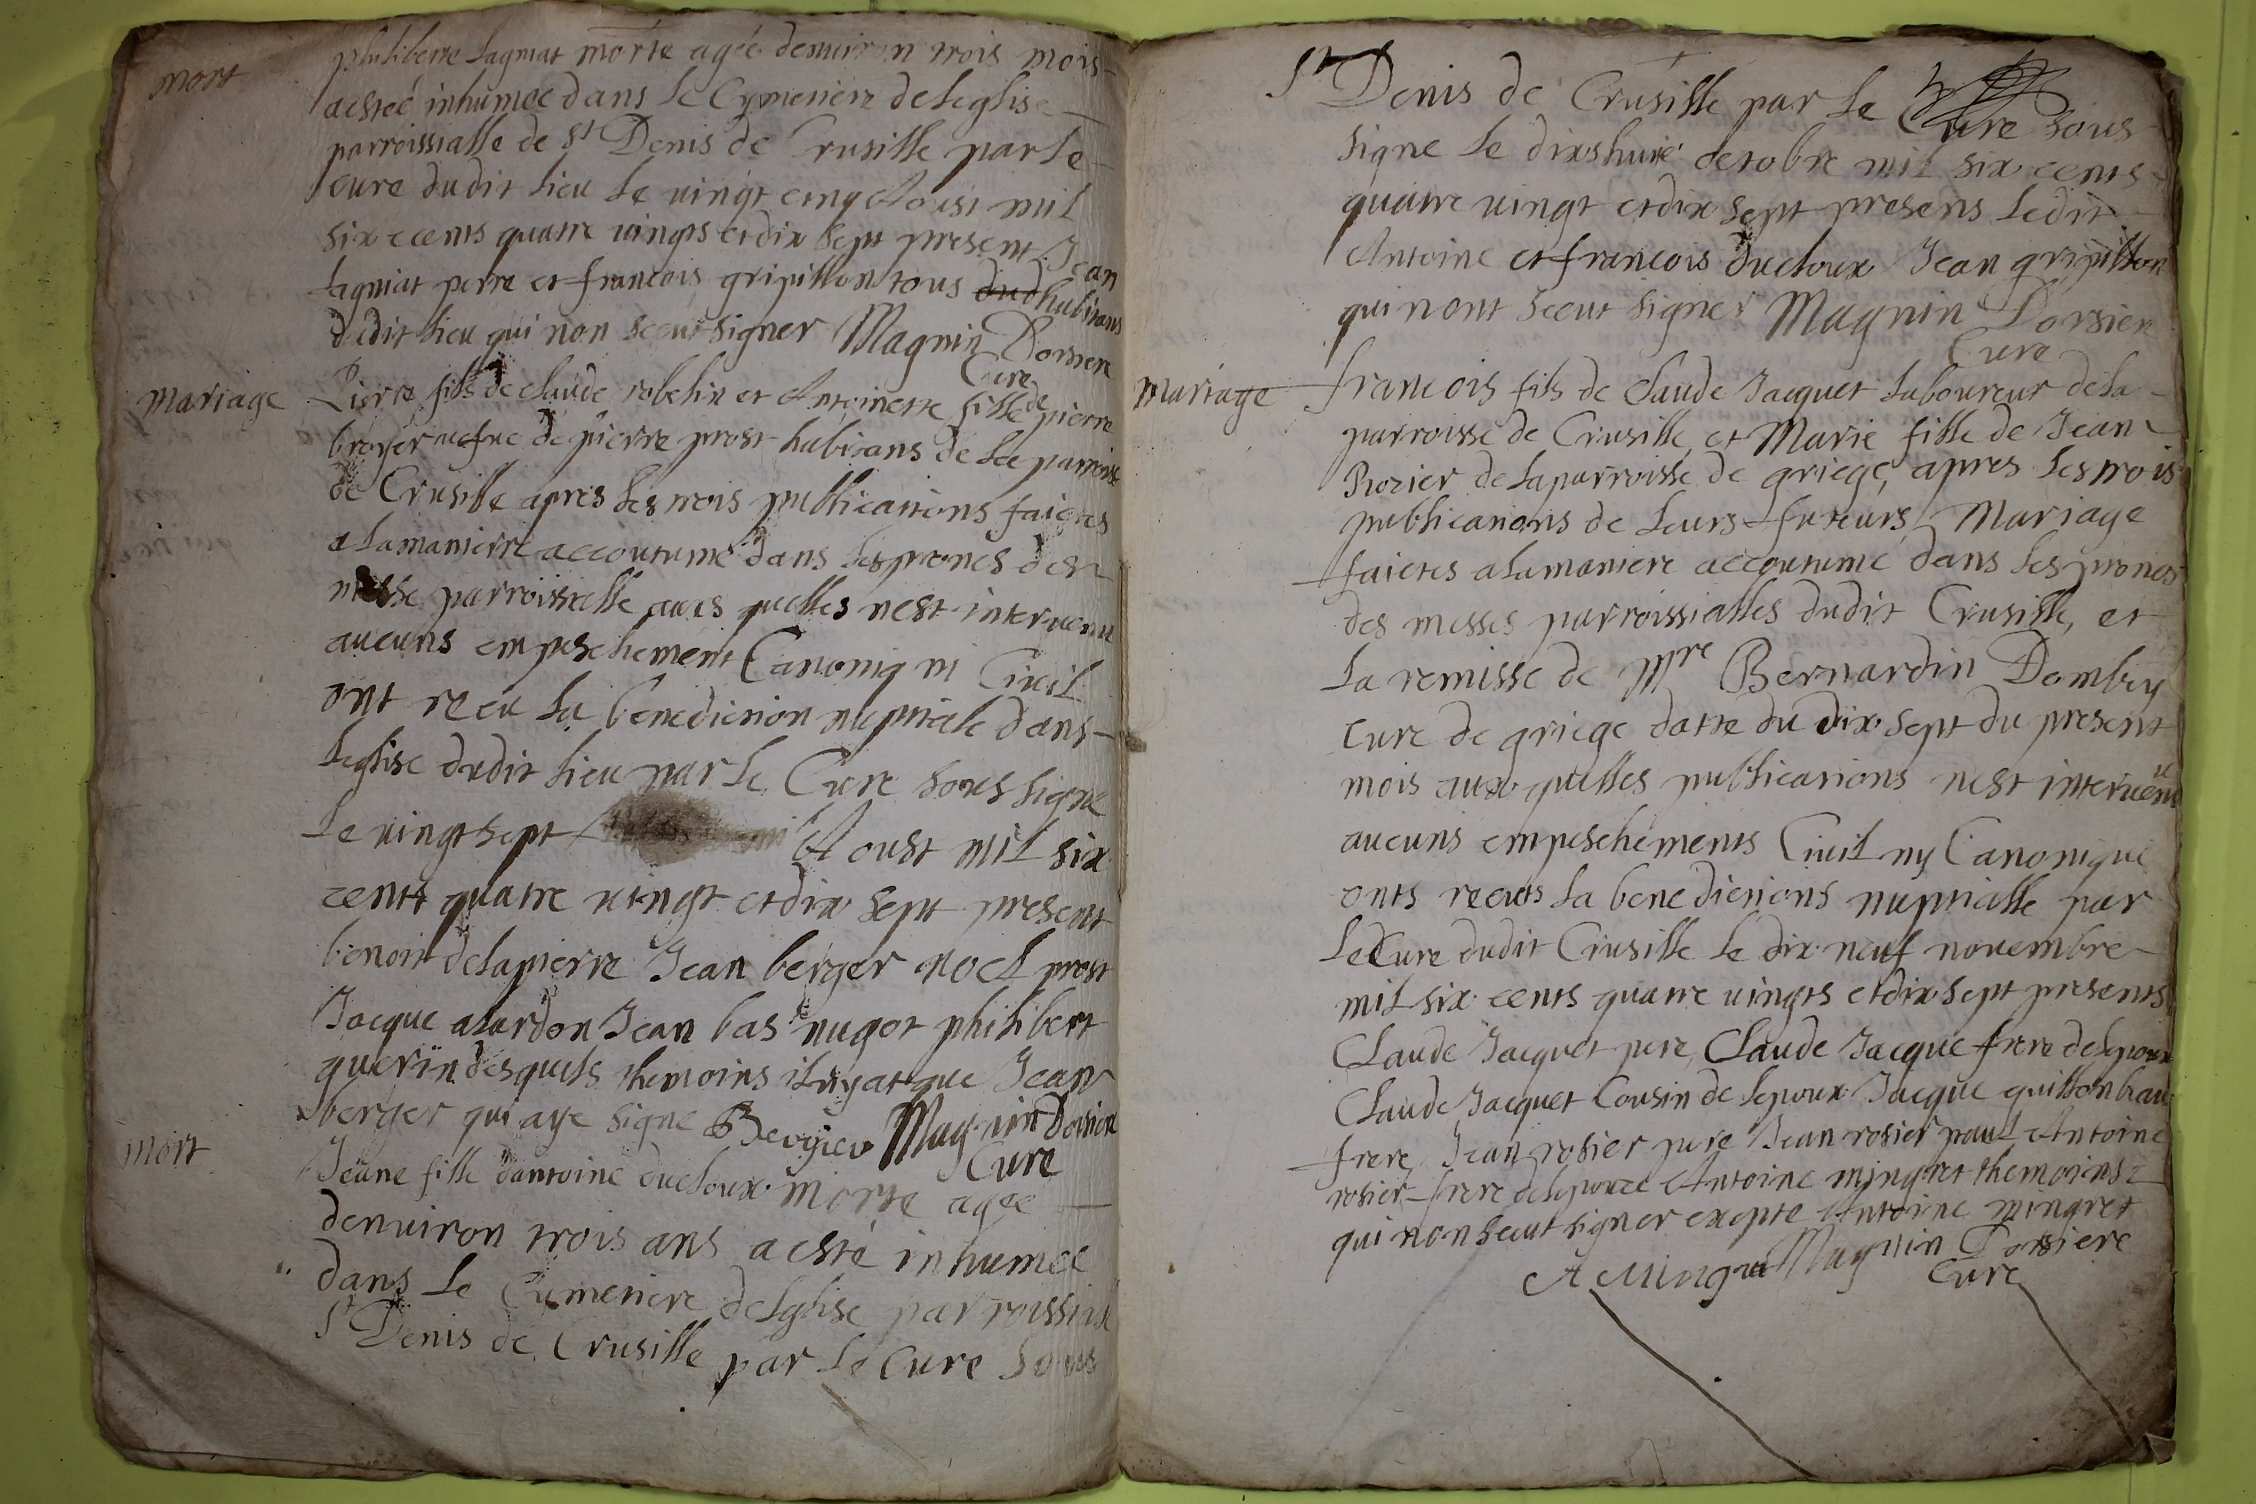 mort
philiberte Lagniat morte agée denuiron trois mois
aestée inhumée dans le Cymeniere deleglise
parroissialle de St Denis de Crusille par le
cure dudit lieu le uingt cinq Aoust mil
six cents quatre uingts et dix sept present Jean
Lagniat perre et francois gripillon tous habitans
dudit lieu qui non sceut signer Magnin Dorsiere
Cure
mariage
Pierre fils de claude robelin et Antoinette fille de pierre
broyer uefue de pierre prost habitans de la parroisse
de Crusille apres les trois publications faictes
a lamanierre accoutume dans les prones des
messe parroissialle aux quelles nest interuenu
aucuns empeschement Canoniq ni Ciuil
ont receu la benediction nuptiale dans
leglise dudit lieu par le Cure sous signe
le uingt sept Aoust mil six
cents quatre uingt et dix sept present
benoit delapierre Jean berger noel prost
Jacque alardon Jean bas nugot philibert
guerin desquels themoins ilnyat que Jean
berger qui aye signe Bergier Magnin Dorsiere
Cure
mort
Jeane fille dantoine ducloux morte agée
denuiron trois ans a esté inhumée
dans le Cymeniere deleglise parroissial
St Denis de Crusille par le cure sous
St Denis de Crusille par le Cure sous
signe le dixshuit octobre mil six cents
quatre uingt et dix sept presens ledit
Antoine et francois ducloux Jean gripillon
qui nont sceut signer Magnin Dorsiere
Cure
mariage
francois fils de Claude Jacquet laboureur dela
parroisse de Crusille, et Marie fille de Jean
Rozier de laparroisse de griege, apres les trois
publications de leurs futeurs Mariage
faictes alamaniere accoutume dans les prones
des messes parroissialles dudit Crusille, et
La remisse de Mre Bernardin Dombey
cure de griege datte du dix sept du present
mois aux quelles publications nest interuenu
aucuns empeschéments Ciuil ny Canonique
onts receus la benedictions nuptialle par
le Cure dudit Crusille le dix neuf nouembre
mil six cents quatre uingts et dix sept presents
Claude Jacquet pere, Claude Jacque frere delepoux
Claude Jacquet Cousin de lepoux Jacque guillon beau
frere Jean rosier pere Jean rosier paul Antoine
rosier frere delepouze Antoine mingret themoins
qui non sceut signer excepte Antoine mingret
A Mingret Magnin Dorsiere
Cure